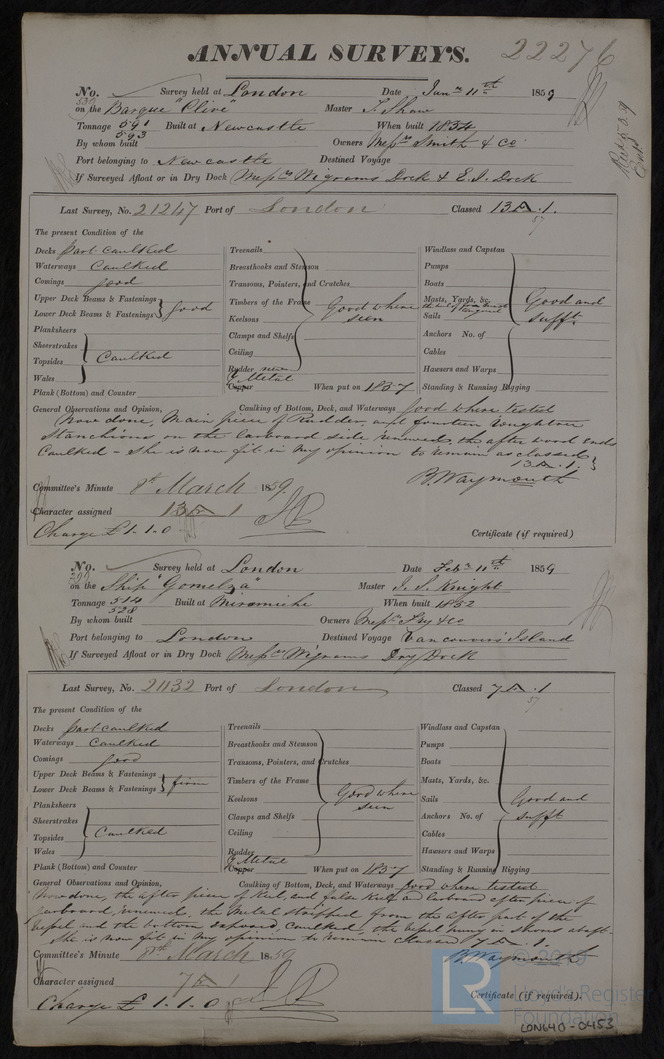 ANNUAL SURVEYS. 22276
No. 539 Survey held at London Date Jany 11th 1859
on the Barque "Clive" Master T. Shaw
Tonnage 591 593 Built at Newcastle When built 1834
By whom built Owners Messrs Smith & Co
Port belonging to Newcastle Destined Voyage
If Surveyed Afloat or in Dry Dock Messrs Wigrams Dock & E.I. Dock
Last Survey, No. 21247 Port of London Classed 13 A .1. 57
The present Condition of the
Decks part caulked
Waterways Caulked
Comings good
Upper Deck Beams & Fastenings
Lower Deck Beams & Fastenings good
Planksheers
Sheerstrakes
Topsides Caulked
Wales
Plank (Bottom) and Counter
Treenails
Breasthooks and Stemson
Transoms, Pointers, and Crutches
Timbers of the Frame Good where
Keelsons seen
Clamps and Shelfs
Ceiling
Rudder new
Y Metal
Copper When put on 1857
Windlass and Capstan
Pumps
Boats
Masts, Yards, &c. Good and
Sails sufft.
Anchors No. of
Cables
Hawsers and Warps
Standing & Running Rigging
General Observations and Opinion, Caulking of Bottom, Deck, and Waterways good where tested
Now done, Main piece of Rudder, and fourteen roughtree
Stanchions on the larboard side renewed, the after wood ends
Caulked - She is now fit in my opinion to remain as classed
13 A .1.
B. Waymouth
Committee's Minute 8th March 1859.
Character assigned 13 A 1
Charge £1-1-0 Certificate (if required)
No. 299 Survey held at London Date Feby 11th 1859
on the Ship "Gomelza" Master J. S. Knight
Tonnage 514 528 Built at Miramichi When built 1852
By whom built Owners Messrs Fry & Co
Port belonging to London Destined Voyage Vancouvers Island
If Surveyed Afloat or in Dry Dock Messrs Wigrams Dry Dock
Last Survey, No. 21132 Port of London Classed 7 A .1 57
The present Condition of the
Decks part caulked
Waterways Caulked
Comings good
Upper Deck Beams & Fastenings
Lower Deck Beams & Fastenings firm
Planksheers
Sheerstrakes
Topsides Caulked
Wales
Plank (Bottom) and Counter
Treenails
Breasthooks and Stemson
Transoms, Pointers, and Crutches
Timbers of the Frame
Keelsons Good where
seen
Clamps and Shelfs
Ceiling
Rudder
Y Metal
Copper When put on 1857
Windlass and Capstan
Pumps
Boats
Masts, Yards, &c.
Sails Good and
Anchors No. of sufft
Cables
Hawsers and Warps
Standing & Running Rigging
General Observations and Opinion, Caulking of Bottom, Deck, and Waterways good where tested
Now done, the after piece of Keel, and false Keel and larboard after piece of
garboard, renewed, the Metal stripped from the after part of the
vessel and the bottom exposed, caulked, the vessel hung in shores abaft.
She is now fit in my opinion to remain classed 7 A .1.
Committee's Minute 8th March 1859 B. Waymouth
Character assigned 7 A 1
Charge £ 1-1-0 Certificate (if required).
LR
Lloyd's Register
Foundation
LON640-0453